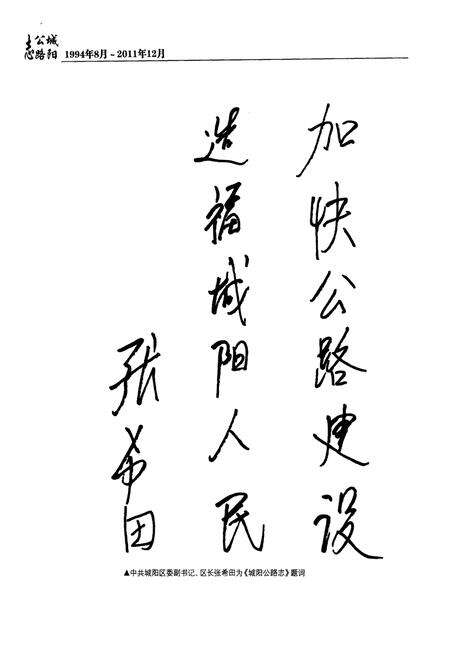 城阳公路志
1994年8月－2011年12月
加快公路建设
造福城阳人民
张希田
▲中共城阳区委副书记、区长张希田为《城阳公路志》题词